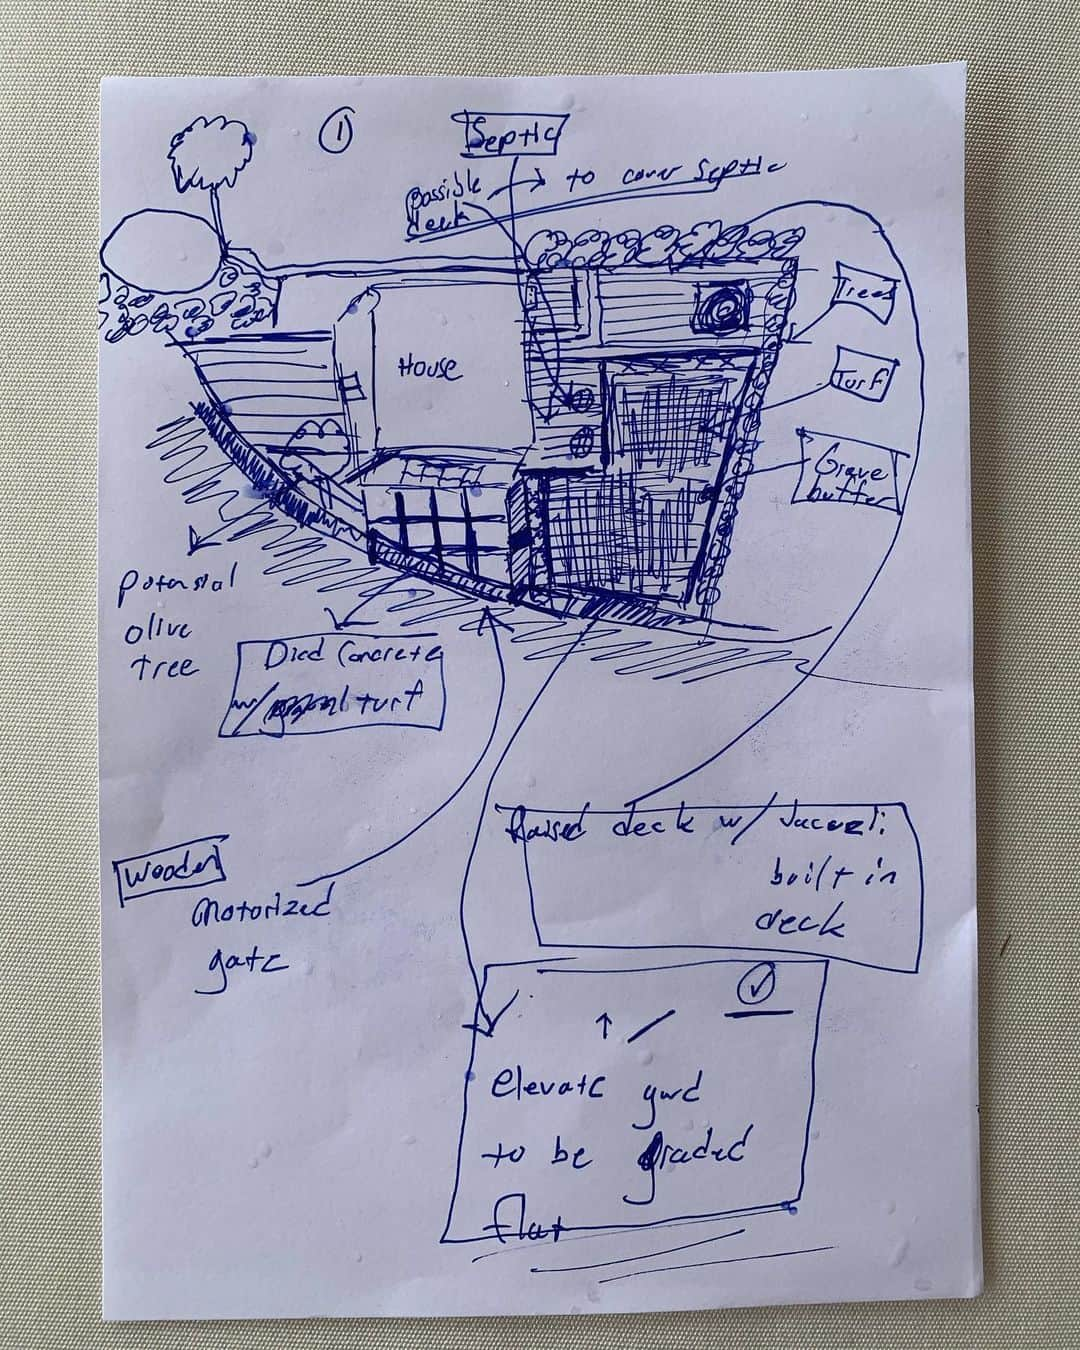 1
Septic
Possible → to cover Septic
deck
Trees
House
Turf
Grave
butter
Potensial
olive
tree
Died Concrete
w/ turf
Raised deck w/ Jacuzi
built in
deck
Wooden
Motorized
gate
elevate yard
to be graded
flat